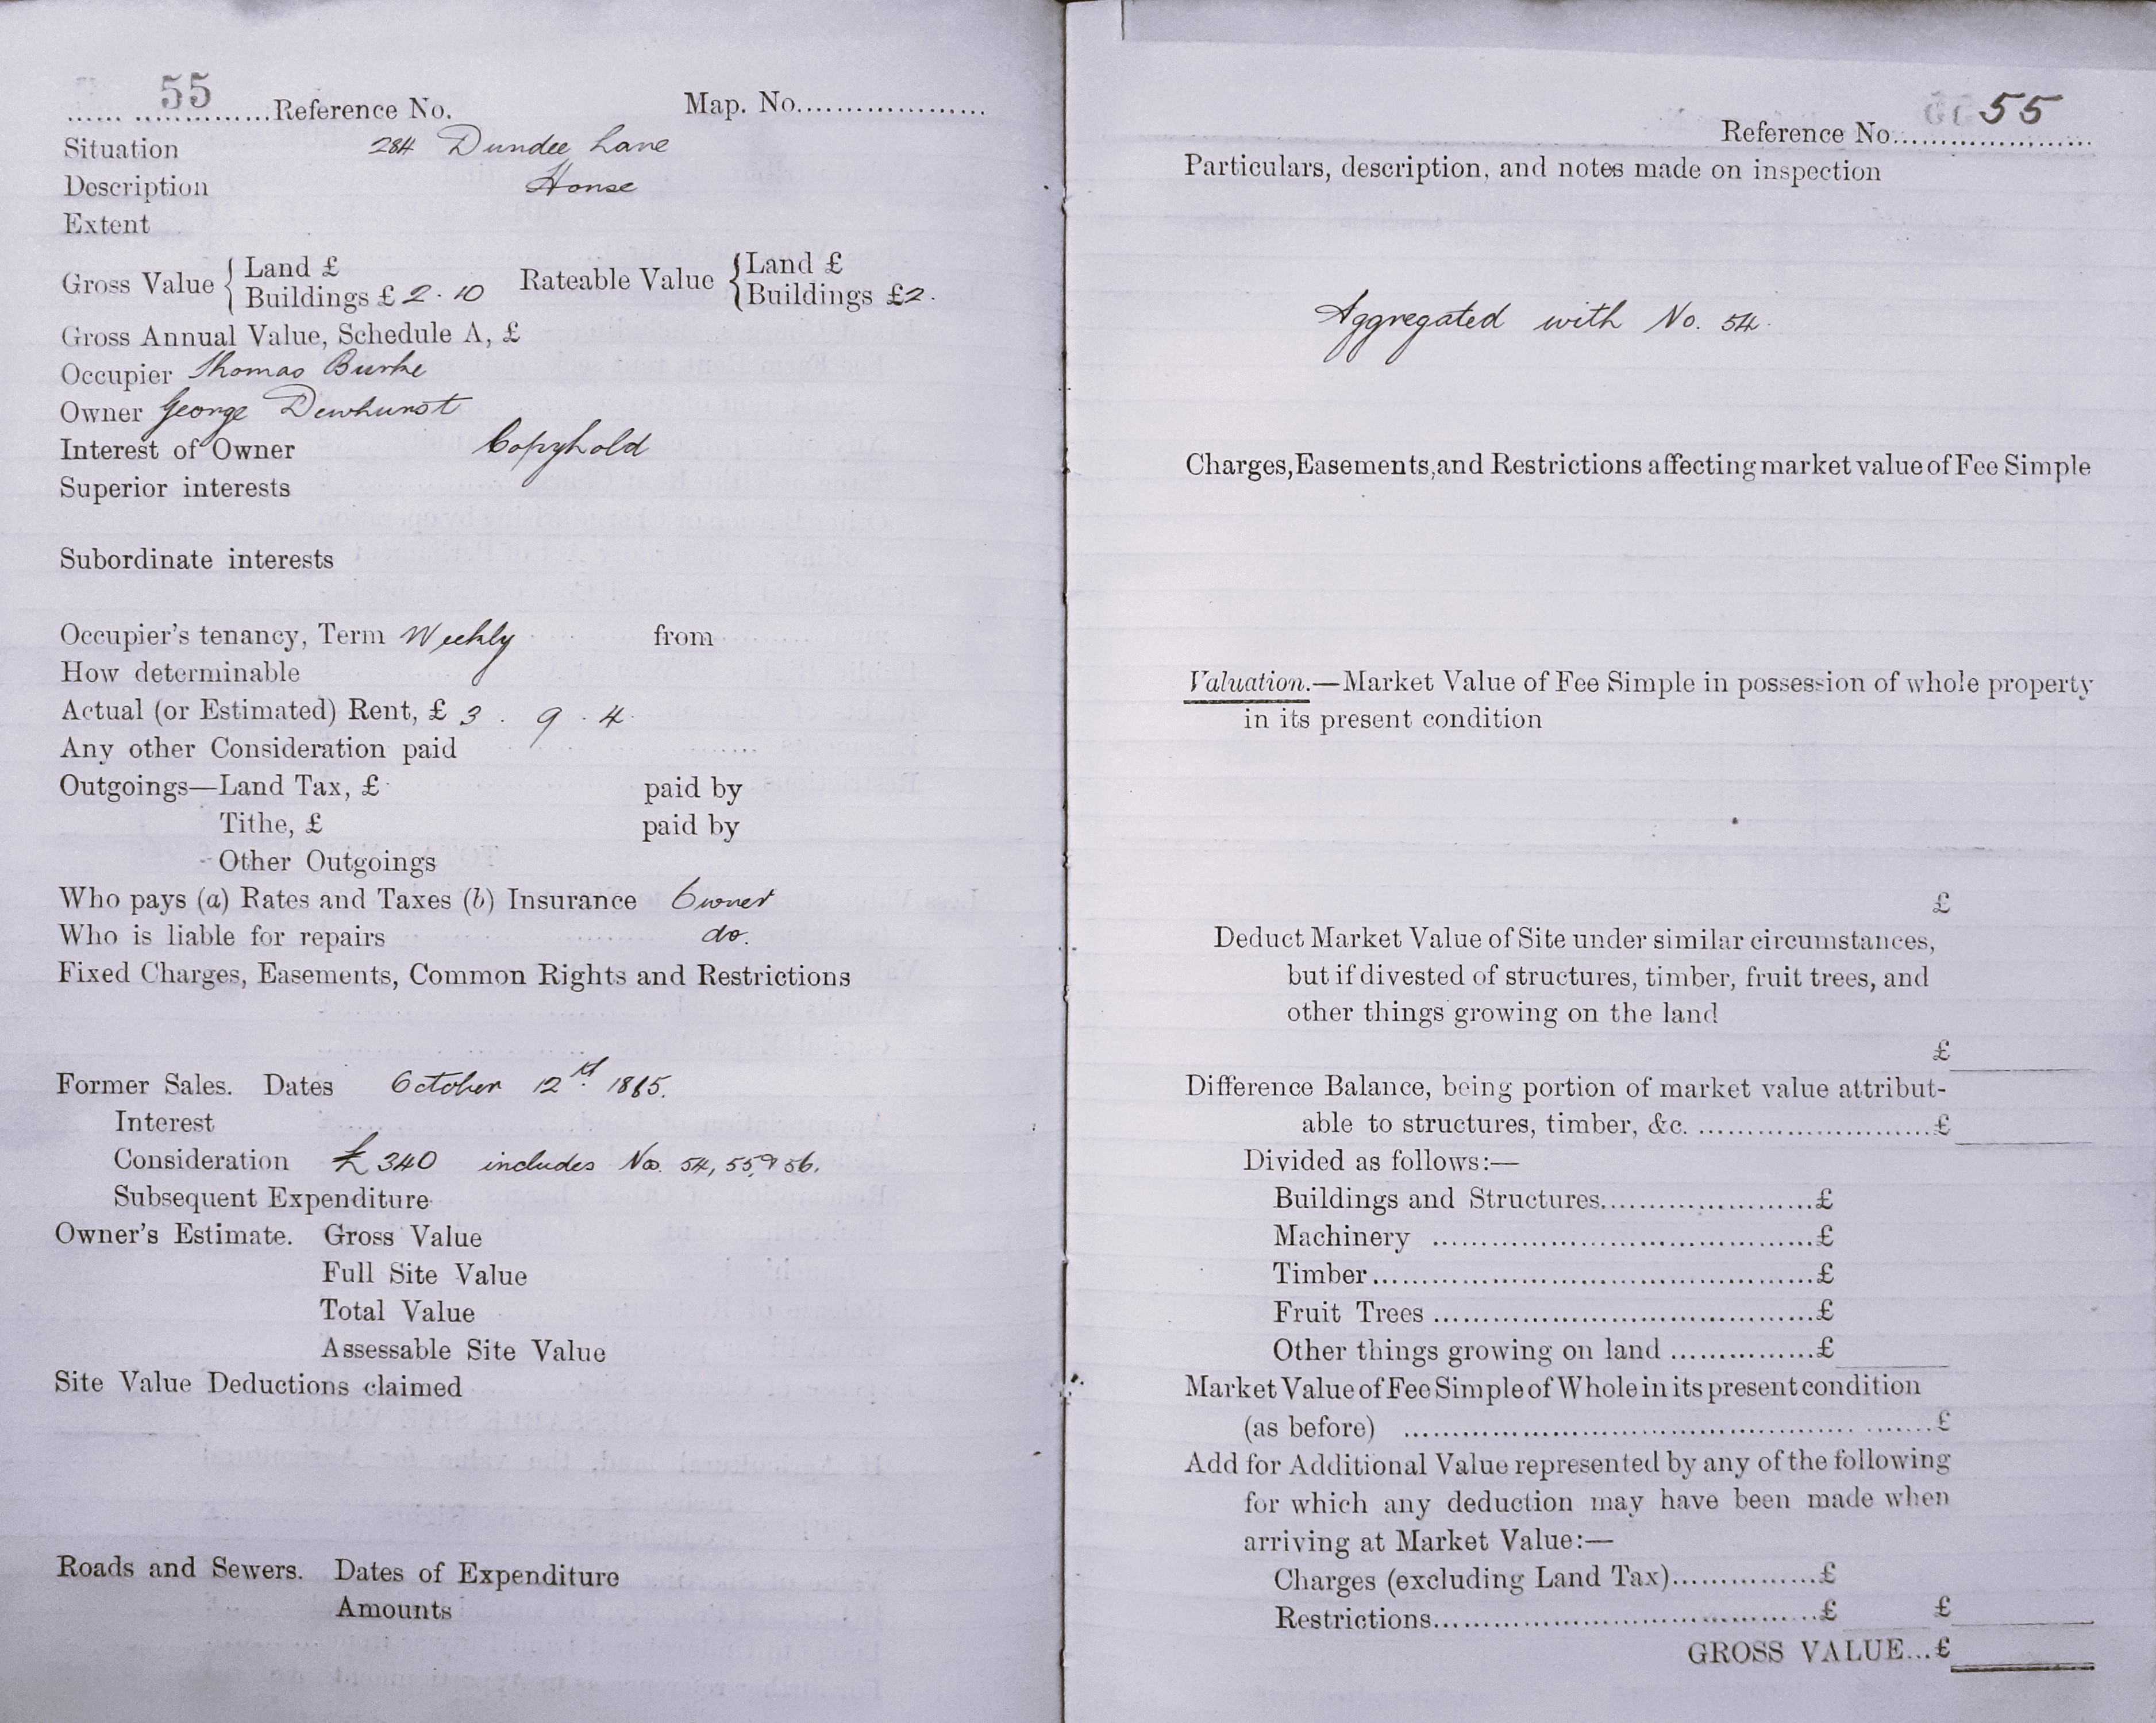 55 Reference No. Map. No.
Situation 284 Dundee Lane
Description House
Extent
Gross Value { Land £
Buildings £ 2 . 10 Rateable Value { Land £
Buildings £2 .
Gross Annual Value, Schedule A, £
Occupier Thomas Burke
Owner George Dewhurst
Interest of Owner Copyhold
Superior interests
Subordinate interests
Occupier's tenancy, Term Weekly from
How determinable
Actual (or Estimated) Rent, £ 3 . 9 . 4 .
Any other Consideration paid
Outgoings—Land Tax, £ paid by
Tithe, £ paid by
Other Outgoings
Who pays (a) Rates and Taxes (b) Insurance Owner
Who is liable for repairs do.
Fixed Charges, Easements, Common Rights and Restrictions
Former Sales. Dates October 12
Interest
Consideration £340 includes Nos. 54, 55, & 56.
Subsequent Expenditure
Owner's Estimate. Gross Value
Full Site Value
Total Value
Assessable Site Value
Site Value Deductions claimed
Roads and Sewers. Dates of Expenditure
Amounts
Reference No. 55
Particulars, description, and notes made on inspection
Aggregated with No. 54.
Charges, Easements, and Restrictions affecting market value of Fee Simple
Valuation.—Market Value of Fee Simple in possession of whole property
in its present condition
£
Deduct Market Value of Site under similar circumstances,
but if divested of structures, timber, fruit trees, and
other things growing on the land
£
Difference Balance, being portion of market value attribut-
able to structures, timber, &c. £
Divided as follows:—
Buildings and Structures £
Machinery £
Timber £
Fruit Trees £
Other things growing on land £
Market Value of Fee Simple of Whole in its present condition
(as before) £
Add for Additional Value represented by any of the following
for which any deduction may have been made when
arriving at Market Value:—
Charges (excluding Land Tax) £
Restrictions £ £
GROSS VALUE... £